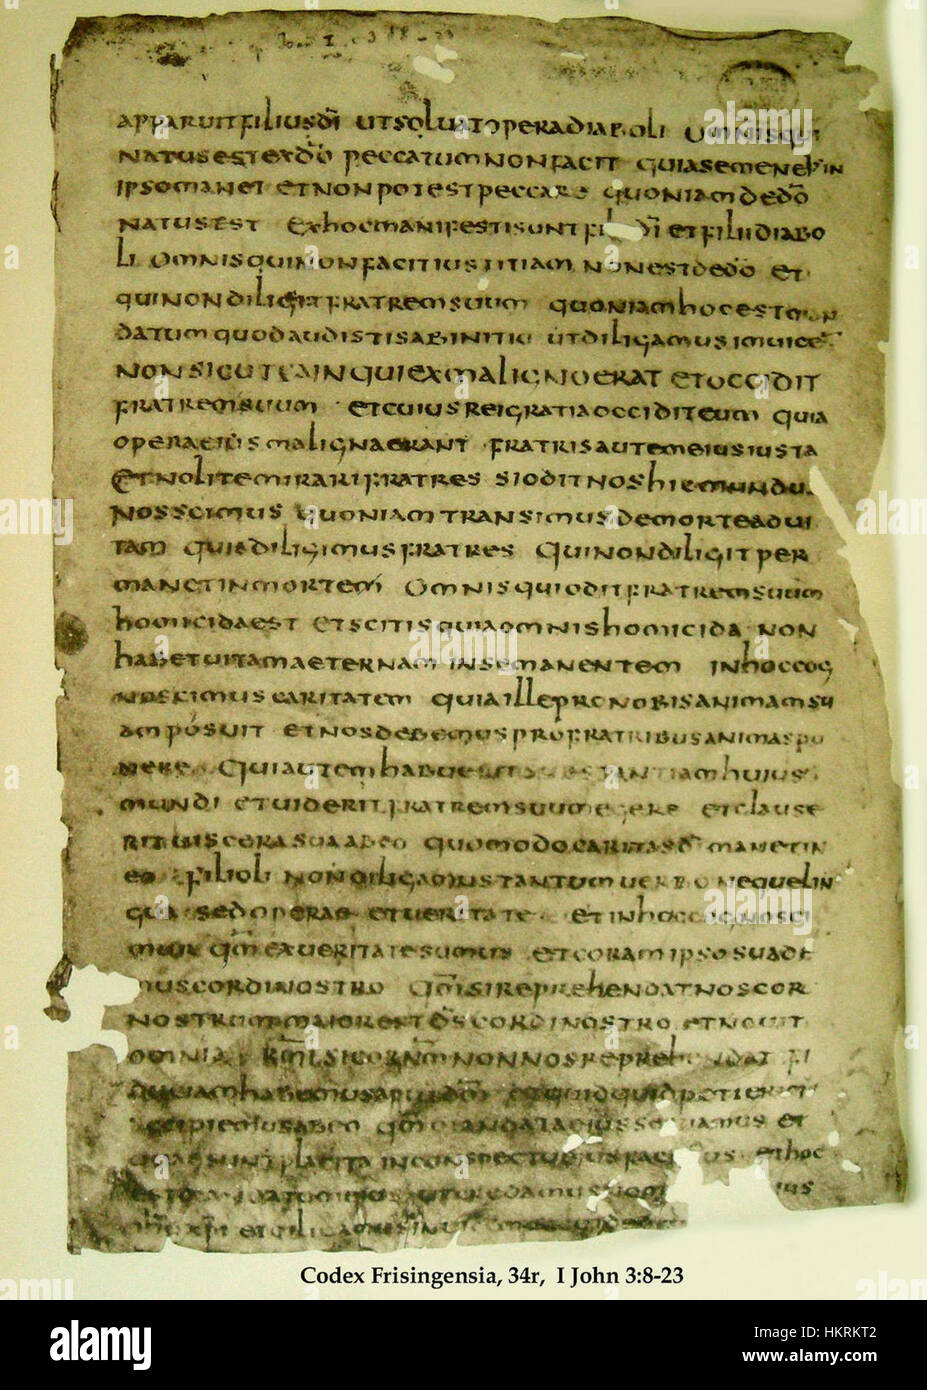 APPARUIT FILIUS DĪ UT SOLUAT OPERA DIABOLI OMNIS QUI
NATUS EST EX DŌ PECCATUM NON FACIT QUIA SEMEN
IPSO MANET ET NON POTEST PECCARE QUONIAM DE DŌ
NATUS EST EX HOC MANIFESTI SUNT DĪ ET FILII DIABO
LI OMNIS QUI NON FACIT IUSTITIAM NON EST DE DŌ ET
QUI NON DILIGIT FRATREM SUUM QUONIAM HOC EST
DATUM QUOD AUDISTIS AB INITIO UT DILIGAMUS
NON SICUT CAIN QUI EX MALIGNO ERAT ET OCCIDIT
FRATREM SUUM ET CUIUS REI GRATIA OCCIDIT EUM QUIA
OPERA EIUS MALIGNA ERANT FRATRIS AUTEM EIUS IUSTA
ET NOLITE MIRARI FRATRES SI ODIT NOS HIC MUNDU
NOS SCIMUS QUONIAM TRANSIMUS DE MORTE AD UI
TAM QUIA DILIGIMUS FRATRES QUI NON DILIGIT PER
MANET IN MORTEM OMNIS QUI ODIT FRATREM SUUM
HOMICIDA EST ET SCITIS QUIA OMNIS HOMICIDA NON
HABET UITAM AETERNAM IN SE MANENTEM IN HOC COG
NOSCIMUS CARITATEM QUIA ILLE PRO NOBIS ANIMAM SU
AM POSUIT ET NOS DEBEMUS PRO FRATRIBUS ANIMAS PO
NERE QUI AUTEM HABUERIT SUBSTANTIAM HUIUS
MUNDI ET UIDERIT FRATREM SUUM EGERE ET CLAUSE
RIT UISCERA SUA AB EO QUOMODO CARITAS DĪ MANET IN
EO FILIOLI NON DILIGAMUS TANTUM UERBO NEQUE LIN
GUA SED OPERAE ET UERITATE ET IN HOC COGNOSCI
MUR QM̄ EX UERITATE SUMUS ET CORAM IPSO SUADE
MUS CORDI NOSTRO QM̄ SI REPREHENDAT NOS COR
NOSTRUM MAIOR EST DS̄ CORDI NOSTRO ET NOUIT
OMNIA KRMĪ SI COR NM̄ NON NOS REPREHENDAT FI
DUCIAM HABEMUS APUD DM̄ ET QUIDQUID PETIERIMUS
ACCIPIEMUS AB EO QM̄ MANDATA EIUS SERUAMUS ET
QUAE SUNT PLACITA IN CONSPECTU EIUS ET HOC
EST MANDATUM EIUS UT CREDAMUS NOMINI IUS
XPĪ ET DILIGAMUS
Codex Frisingensia, 34r, I John 3:8-23
alamy
Image ID: HKRKT2
www.alamy.com